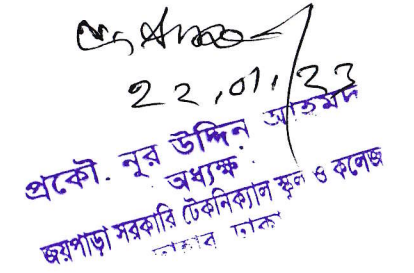 22,01/23
প্রকৌ. নূর উদ্দিন আহমদ
অধ্যক্ষ
জয়পাড়া সরকারি টেকনিক্যাল স্কুল ও কলেজ
ঢাকা